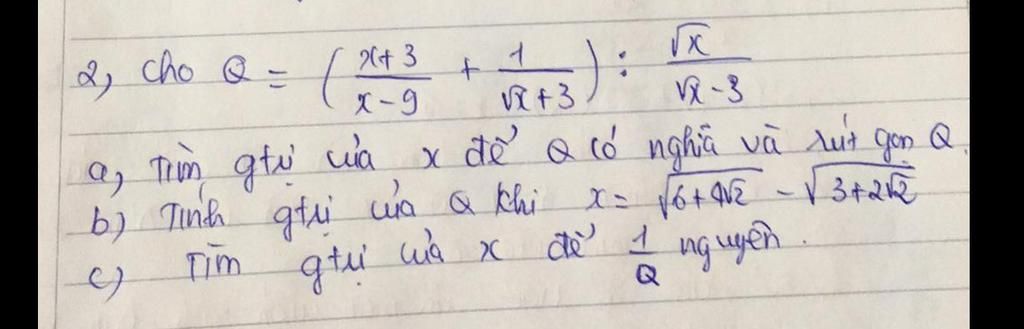 2, Cho Q = ( \frac{x+3}{x-9} + \frac{1}{\sqrt{x}+3} ) : \frac{\sqrt{x}}{\sqrt{x}-3}
a, Tìm gtrị của x để Q có nghĩa và rút gọn Q.
b) Tính gtrị của Q khi x = \sqrt{6+4\sqrt{2}} - \sqrt{3+2\sqrt{2}}
c) Tìm gtrị của x để \frac{1}{Q} nguyên.